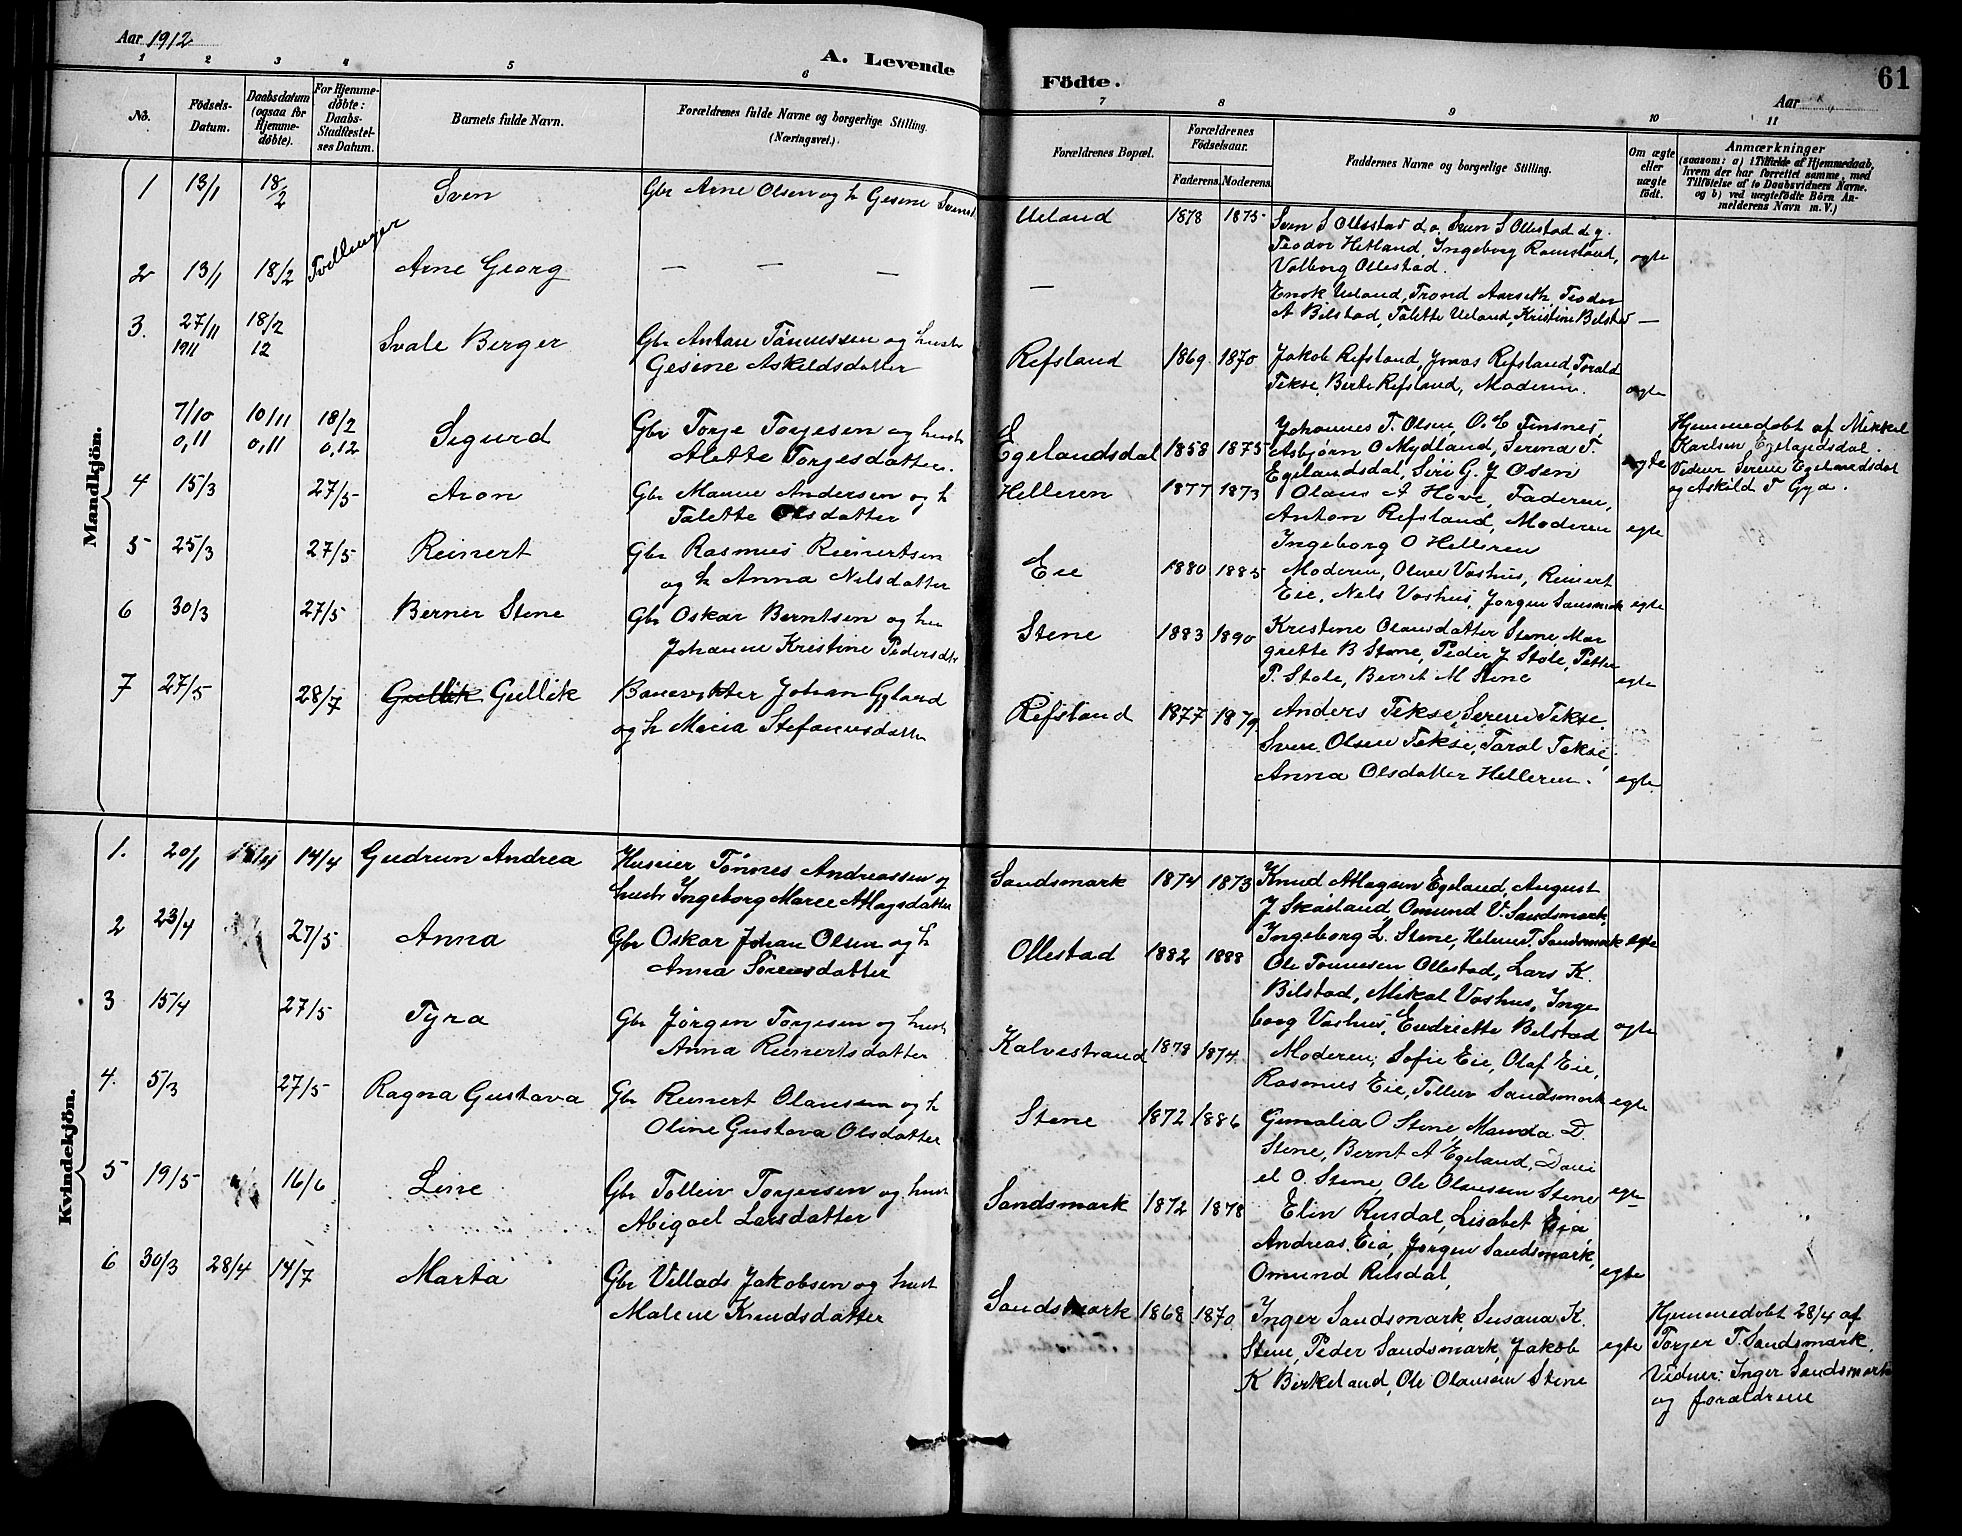 Aar 1912
A. Levende
Födte.
Aar
61
1 2 3 4 5 6 7 8 9 10 11
No.
Födsels-
Datum.
Daabsdatum
(ogsaa for
Hjemme-
døbte).
For Hjemme-
døbte:
Daabs-
Stadfæstel-
ses Datum.
Barnets fulde Navn.
Forældrenes fulde Navne og borgerlige Stilling.
(Næringsvei.)
Forældrenes Bopæl.
Forældrenes
Födselsaar.
Faderens. Moderens.
Faddernes Navne og borgerlige Stilling.
Om ægte
eller
uægte
födt.
Anmærkninger
(saasom: a) i Tilfælde af Hjemmedaab,
hvem der har forrettet samme, med
Tilføielse af to Daabsvidners Navne,
og b) ved uægtefødte Börn An-
melderens Navn m. V.)
Mandkjön.
1 13/1 18/2 Sven Gbr Arne Olsen og h Gesine Svensd
Ueland 1878 1875 Sven S Ollestad d.æ. Sven S Ollestad d.y.
Teodor Hetland, Ingeborg Ramsland,
Valborg Ollestad. egte
Tvillinger
2 13/1 18/2 Arne Georg — — —
— Enok Ueland, Trond Aarseth, Teodor
A Bilstad, Talette Ueland, Kristine Bilstad —
3. 27/11 1911 18/2 12 Svale Berger Gbr Anton Tönnessen og hustr
Gesine Askildsdatter
Refsland 1869 1870 Jakob Refsland, Jonas Refsland, Torald
Tekse, Berte Refsland, Moderen. egte
7/10 0,11 10/11 0,11 18/2 0,12 Sigurd Gbr Torje Torjesen og hustr
Alette Torjesdatter.
Egelandsdal 1858 1875 Johannes T. Olsen, O. E Finsnes
Asbjørn O Mydland, Serina T.
Egelandsdal, Siri G. J Osen egte
Hjemmedøbt af Mikkel
Karlsen Egelandsdal.
Vidner Serine Egelandsdal
og Askild T Gya.
4 15/3 27/5 Aron Gbr Manne Andersen og h
Talette Olsdatter
Helleren 1877 1873 Olaus A Hove, Faderen,
Anton Refsland, Moderen
Ingeborg O Helleren egte
5 25/3 27/5 Reinert Gbr Rasmus Reinertsen
og h Anna Nilsdatter
Eie 1880 1885 Moderen, Oline Vashus, Reinert
Eie, Nels Vashus, Jørgen Sansmark egte
6 30/3 27/5 Berner Stene Gbr Oskar Berntsen og hu
Johanne Kristine Pedersdtr
Stene 1883 1890 Kristine Olausdatter Stene, Mar
grette B Stene, Peder J Støle, Petter
P. Støle, Berrit M Stene egte
7 27/5 28/7 Gullik Gullik Banevokter Johan Gyland
og h Maria Stefanusdatter
Refsland 1877 1879 Anders Tekse, Serine Tekse,
Sven Olsen Tekse, Taral Tekse,
Anna Olsdatter Helleren. egte
Kvindekjön.
1. 20/1 14/4 Gudrun Andrea Huseier Tönnes Andreassen og
hustr Ingeborg Marie Atlagsdatter
Sandsmark 1874 1873 Knud Atlagsen Egeland, August
J Skaaland, Omund V. Sandsmark,
Ingeborg L. Stene, Helene T. Sandsmark egte
2 23/4 27/5 Anna Gbr Oskar Johan Olsen og h
Anna Sörensdatter
Ollestad 1882 1888 Ole Tönnesen Ollestad, Lars K.
Bilstad, Mikal Vashus, Inge
borg Vashus, Endriette Bilstad egte
3 15/4 27/5 Tyra Gbr Jörgen Torjesen og hustr
Anna Reinertsdatter
Kalvestrand 1878 1874 Moderen, Sofie Eie, Olaf Eie,
Rasmus Eie, Tolleiv Sandsmark egte
4. 5/3 27/5 Ragna Gustava Gbr Reinert Olausen og h
Oline Gustava Olsdatter
Stene 1872 1886 Gemalia O Stene, Manda D.
Stene, Bernt A Egeland, Dani
el O. Stene, Ole Olaussen Stene egte
5 19/5 16/6 Line Gbr Tolleiv Torjersen og hust
Abigael Larsdatter
Sandsmark 1872 1878 Elin Rusdal, Lisabet Eia
Andreas Eia, Jørgen Sandsmark,
Omund Rusdal, egte
6 30/3 28/4 14/7 Marta Gbr Villads Jakobsen og hust
Malene Knudsdatter
Sandsmark 1868 1870 Inger Sandsmark, Susana K.
Stene, Peder Sandsmark, Jakob
K Birkeland, Ole Olausen Stene egte
Hjemmedøbt 28/4 af
Torjer T. Sandsmark.
Vidner: Inger Sandsmark
og forældrene